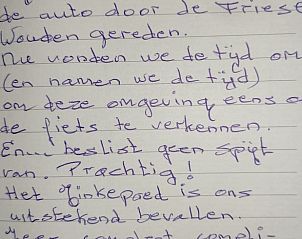 de auto door de Friese
Wouden gereden.
Nu vonden we de tijd om
(en namen we de tijd)
om deze omgeving eens
de fiets te verkennen.
En... beslist geen spijt
van. Prachtig!
Het Finkepaed is ons
uitstekend bevallen.